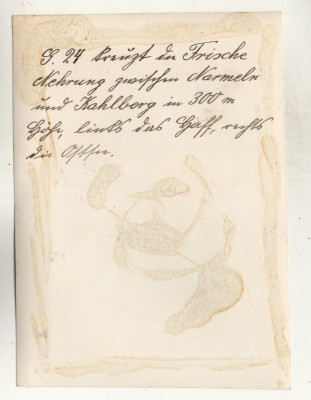 G. 24 kreuzt die Frische
Nehrung zwischen Narmeln
und Kahlberg in 300 m
Höhe, links das Haff, rechts
die Ostsee.